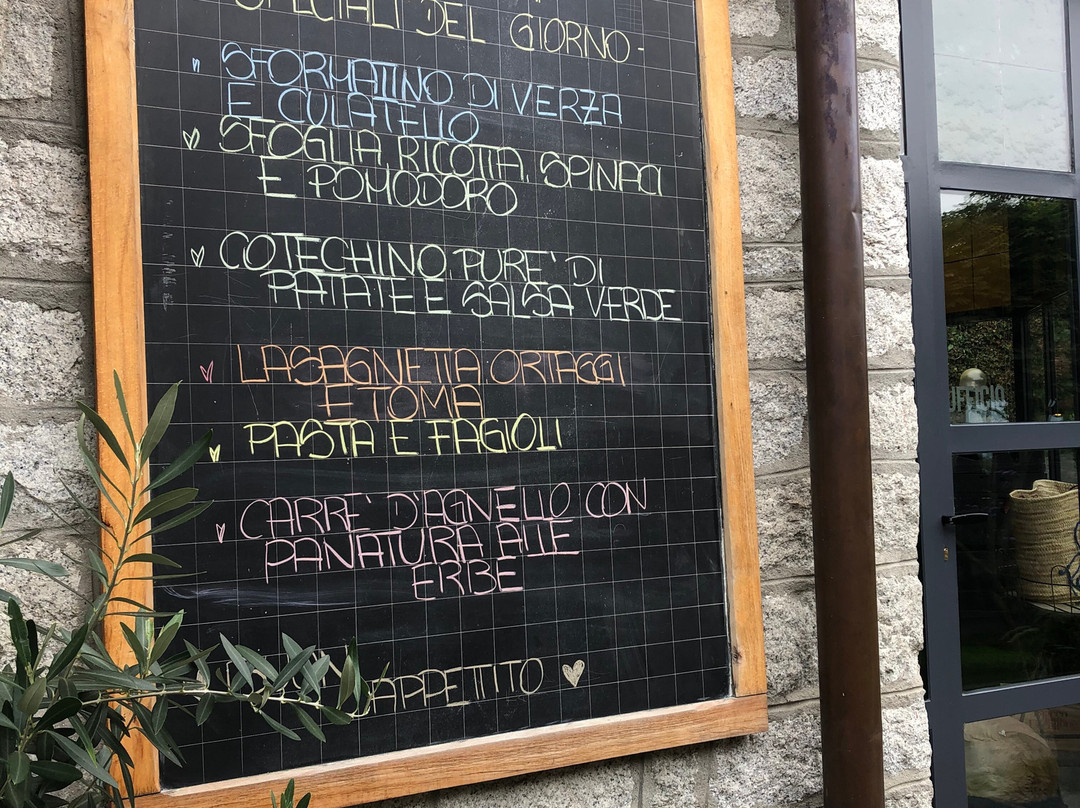 SPECIALI DEL GIORNO -
SFORMATINO DI VERZA
E CULATELLO
SFOGLIA RICOTTA, SPINACI
E POMODORO
COTECHINO, PURE' DI
PATATE E SALSA VERDE
LASAGNETTA ORTAGGI
E TOMA
PASTA E FAGIOLI
CARRE' D'AGNELLO CON
PANATURA ALLE
ERBE
APPETITO
UFFICIO